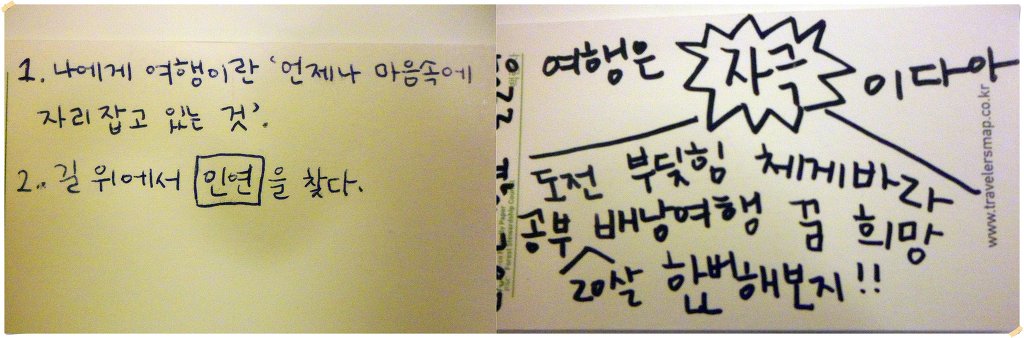 1. 나에게 여행이란 '언제나 마음속에
자리잡고 있는 것'.
2. 길 위에서 인연을 찾다.
여행은 자극이다아
도전 부딪힘 체게바라
공부 배낭여행 꿈 희망
20살 한번해보지!!
www.travelersmap.co.kr